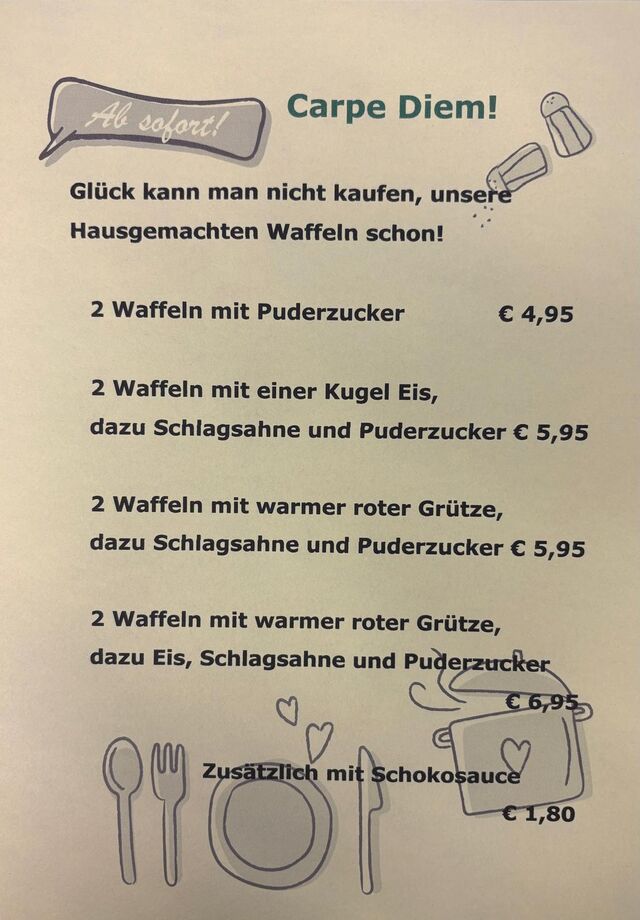 Ab sofort!
Carpe Diem!
Glück kann man nicht kaufen, unsere
Hausgemachten Waffeln schon!
2 Waffeln mit Puderzucker € 4,95
2 Waffeln mit einer Kugel Eis,
dazu Schlagsahne und Puderzucker € 5,95
2 Waffeln mit warmer roter Grütze,
dazu Schlagsahne und Puderzucker € 5,95
2 Waffeln mit warmer roter Grütze,
dazu Eis, Schlagsahne und Puderzucker
€ 6,95
Zusätzlich mit Schokosauce
€ 1,80